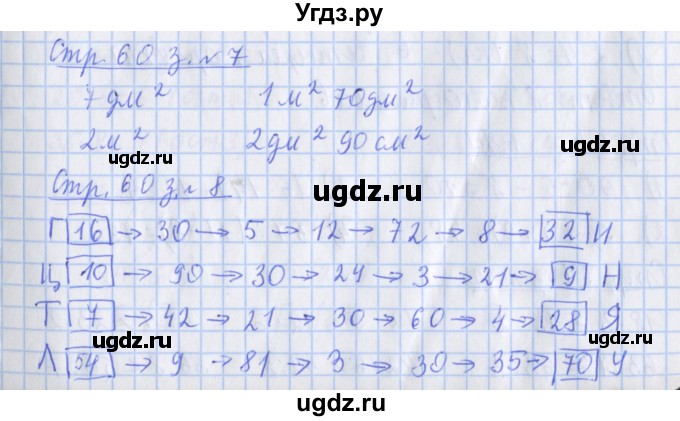 Угдз.ру
Стр. 60 з. №7
7 дм² 1 м² 70 дм²
2 м² 2 дм² 90 см²
ugdz.ru ugdz.ru
Стр. 60 з. № 8
ugdz.ru ugdz.ru
Г 16 → 30 → 5 → 12 → 72 → 8 → 32 И
Ц 10 → 90 → 30 → 24 → 3 → 21 → 9 Н
ugdz.ru
Т 7 → 42 → 21 → 30 → 60 → 4 → 28 Я
ugdz.ru ugdz.ru
Л 54 → 9 → 81 → 3 → 30 → 35 → 70 У
ugdz.ru ugdz.ru